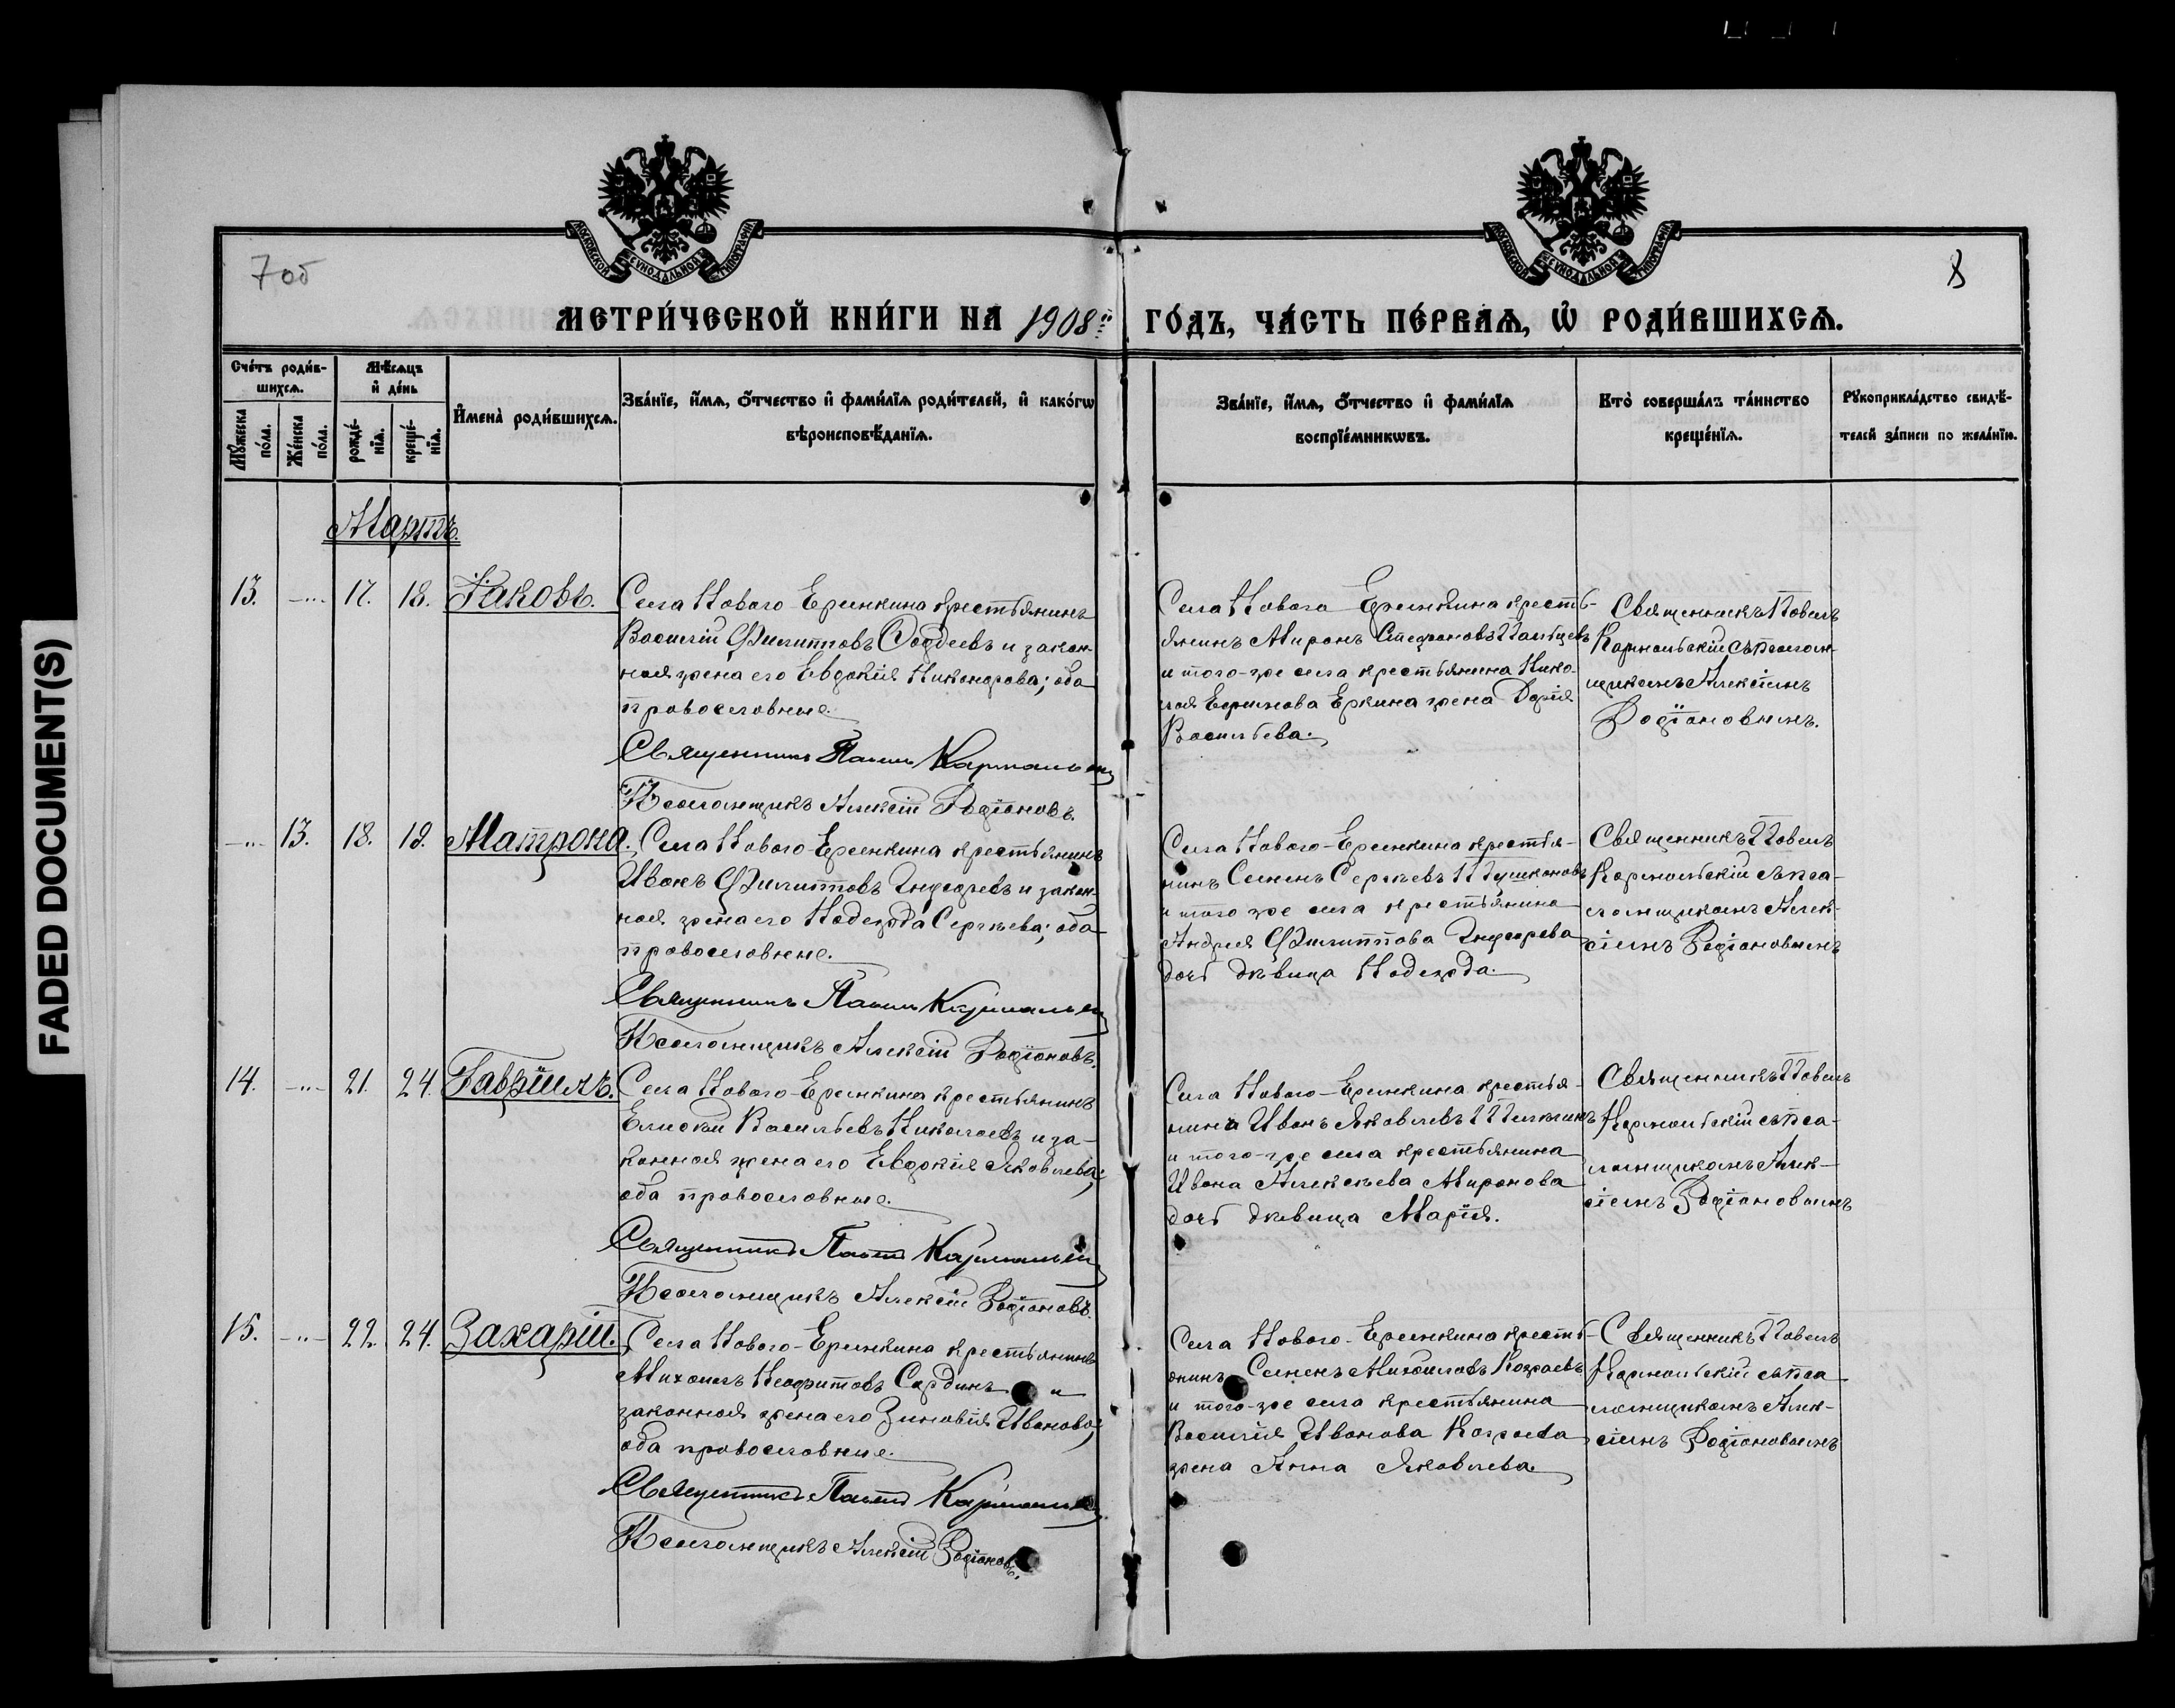 FADED DOCUMENT(S)
МОСКОВСКОЙ СѴНОДАЛЬНОЙ ТИПОГРАФІИ
МОСКОВСКОЙ СѴНОДАЛЬНОЙ ТИПОГРАФІИ
7 об
8
МЕТРИ́ЧЕСКОЙ КНИ́ГИ НА 1908й ГО́ДЪ, ЧА́СТЬ ПЕ́РВАѦ, Ѡ РОДИ́ВШИХСѦ.
Сче́тъ роди́в-
шихсѧ.
Мѣ́сѧцъ
и҆ де́нь
Мꙋ́жеска
по́ла.
Же́нска
по́ла.
рожде́-
нїѧ.
креще́-
нїѧ.
И҆мена̀ роди́вшихсѧ.
Зва́нїе, и҆́мѧ, ѻ҆́тчество и҆ фами́лїѧ роди́телей, и҆ како́гѡ
вѣроисповѣ́данїѧ.
Зва́нїе, и҆́мѧ, ѻ҆́тчество и҆ фами́лїѧ
воспрїе́мникѡвъ.
Кто̀ соверша́лъ та́инство
креще́нїѧ.
Рꙋкоприкла́дство свидѣ́-
телей за́писи по жела́нїю.
Мартъ.
13. -"- 17. 18. Іаковъ.
Села Новаго-Ерёмкина крестьянинъ
Василій Филипповъ и закон-
ная жена его Евдокія Никандрова; оба
православные.
Священникъ Павелъ Кармальскій
Псаломщикъ Алексій Родіоновъ.
Села Новаго Ерёмкина кресть-
янинъ Миронъ Стефановъ Пальцевъ
и того-же села крестьянина Нико-
лая Еркина жена Дарія
Васильева.
Священникъ Павелъ
Кармальскій съ псалом-
щикомъ Алексіемъ
Родіоновымъ.
-"- 13. 18. 19. Матрона.
Села Новаго-Ерёмкина крестьянинъ
Иванъ Филипповъ и закон-
ная жена его Надежда Сергѣева; оба
православные.
Священникъ Павелъ Кармальскій
Псаломщикъ Алексій Родіоновъ.
Села Новаго-Ерёмкина крестья-
нинъ Семенъ Сергѣевъ
и того же села крестьянина
Андрея Филиппова
дочь дѣвица Надежда.
Священникъ Павелъ
Кармальскій съ пса-
ломщикомъ Алек-
сіемъ Родіоновымъ
14. -"- 21. 24. Гавріилъ.
Села Новаго-Ерёмкина крестьянинъ
Елисей Васильевъ Николаевъ и за-
конная жена его Евдокія Яковлева;
оба православные.
Священникъ Павелъ Кармальскій
Псаломщикъ Алексій Родіоновъ.
Села Новаго-Ерёмкина крестья-
нина Иванъ Яковлевъ
и того-же села крестьянина
Ивана Алексѣева Миронова
дочь дѣвица Марія.
Священникъ Павелъ
Кармальскій съ пса-
ломщикомъ Алек-
сіемъ Родіоновымъ
15. -"- 22. 24. Захарій.
Села Новаго-Ерёмкина крестьянинъ
Михаилъ Неофитовъ Сардинъ и
законная жена его Зиновія Иванова;
оба православные.
Священникъ Павелъ Кармальскій
Псаломщикъ Алексій Родіоновъ.
Села Новаго-Ерёмкина кресть-
янинъ Семенъ Михаиловъ
и того-же села крестьянина
Василія Иванова
жена Анна Яковлева.
Священникъ Павелъ
Кармальскій съ пса-
ломщикомъ Алек-
сіемъ Родіоновымъ